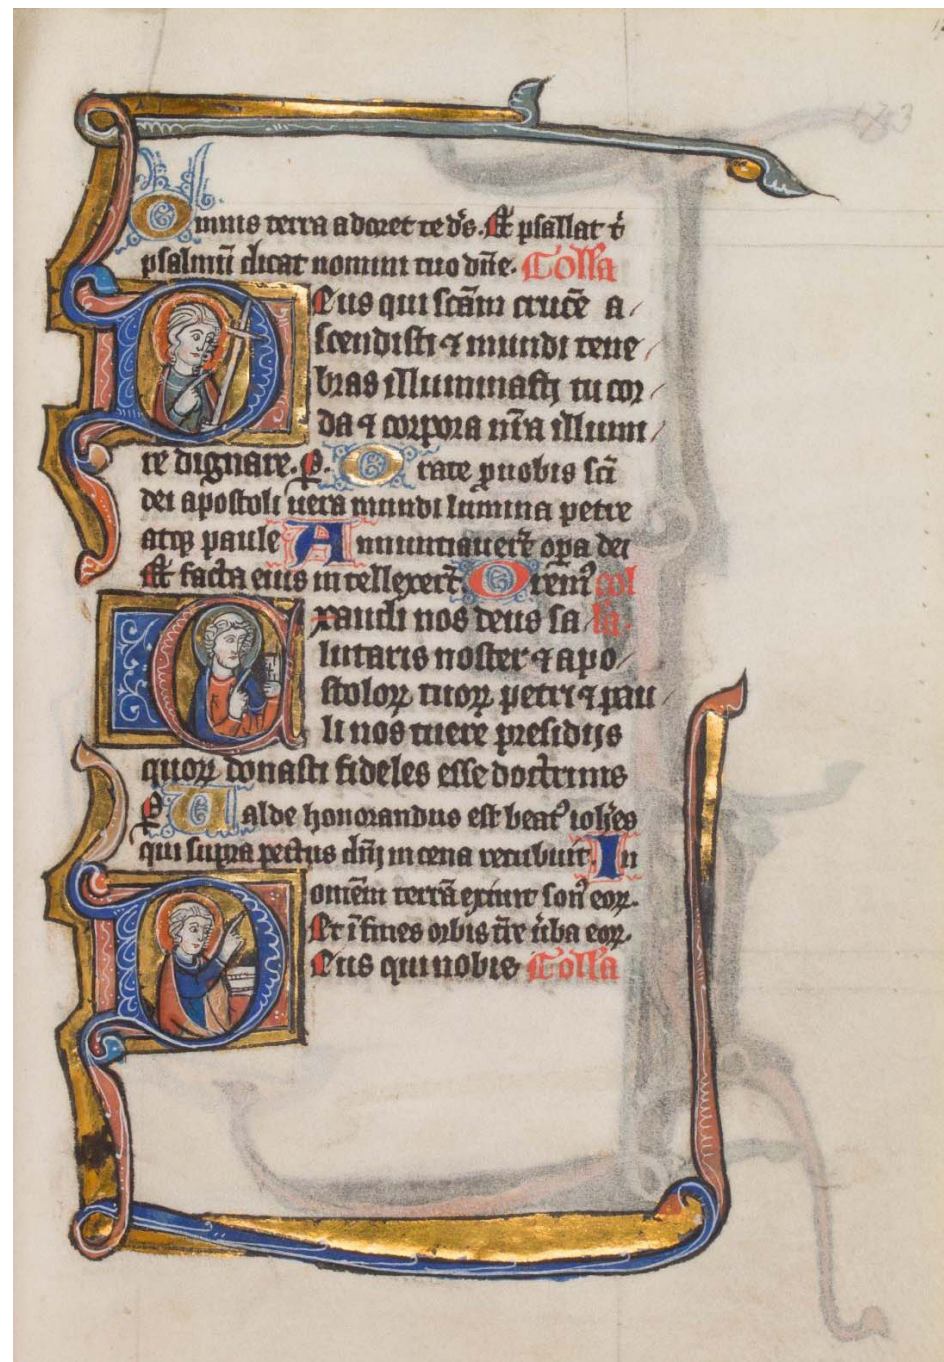 Omnis terra adoret te ds̄. Et psallat t̄
psalmū dicat nomini tuo dn̄e. Coll̄a
Deus qui scām crucē a
scendisti ⁊ mundi tene
bras illuminasti tu cor
da ⁊ corpora nr̄a illumi
re dignare. P. Orate ꝓ nobis scī
dei apostoli uera mundi lumina petre
atqꝫ paule Annuntiauer̄t oꝑa dei
Et facta eius intellexer̄t. Orem⁹ col
Exaudi nos deus sa l̄a.
lutaris noster ⁊ apo
stoloꝝ tuoꝝ petri ⁊ pau
li nos tuere presidijs
quoꝝ donasti fideles esse doctrinis
P. Ualde honorandus est beat⁹ ioh̄es
qui supra pectus dn̄i in cena recubuit. In
omēm terrā exiuit son⁹ eoꝝ.
Et ī fines orbis t̄re ūba eoꝝ.
Deus qui nobis Coll̄a
173